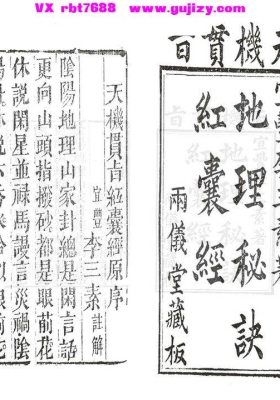 VX rbt7688 www.gujizy.com
機貫旨
地理秘訣
紅囊經
兩儀堂藏板
天機貫旨紅囊經原序
宜豐 李三素 註解
陰陽地理山家卦總是閑言話
更向山頭指撥砂都是眼前花
休說閑星並祿馬謾言災禍陰